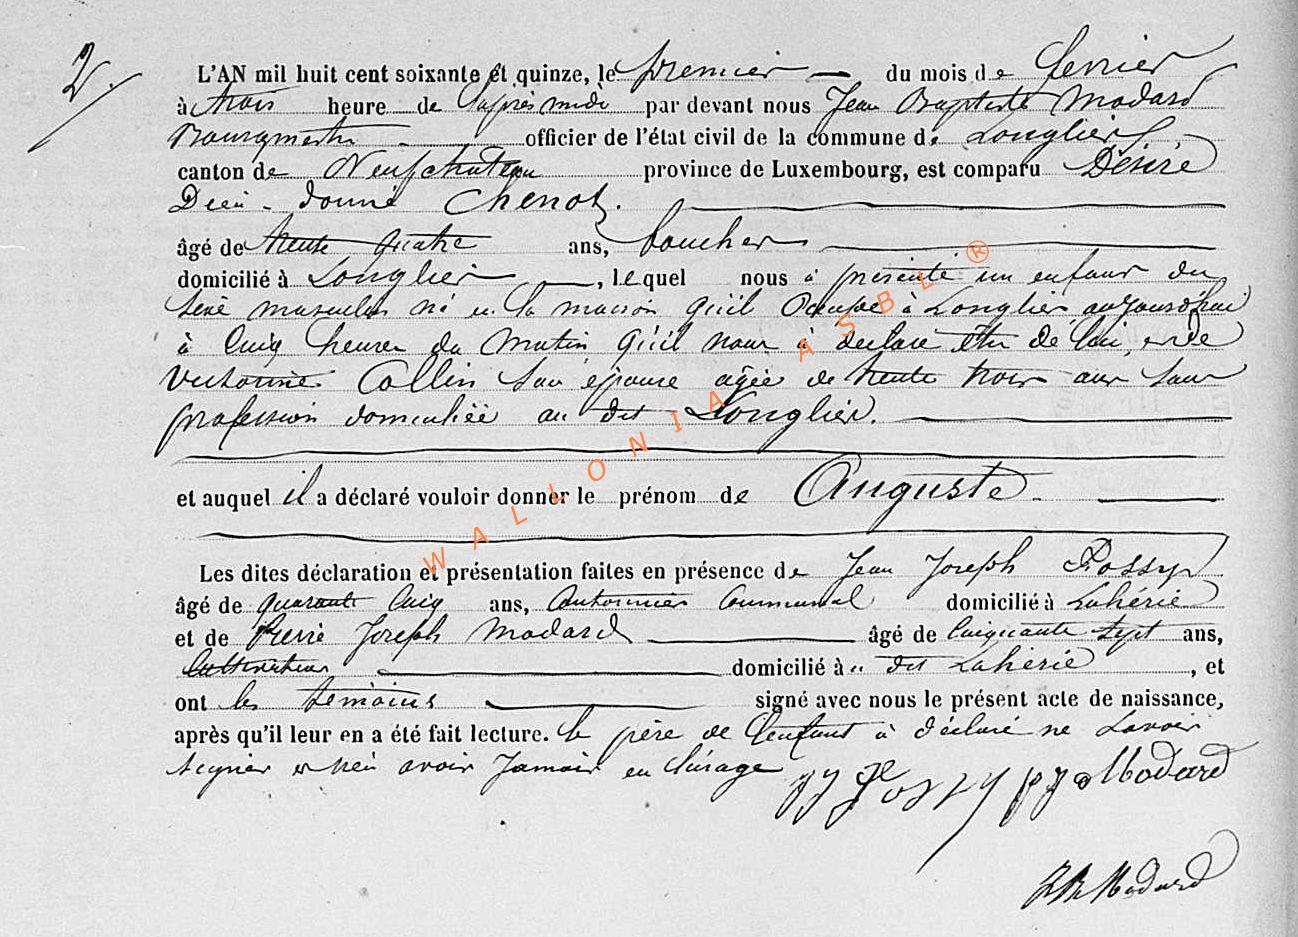 2/.
L'AN mil huit cent soixante et quinze, le premier du mois de fevrier
à trois heure de l'après midi par devant nous Jean Baptiste Modard
Bourgmestre officier de l'état civil de la commune de Longlier
canton de Neufchateau province de Luxembourg, est comparu Désiré
Dieu-donné Chenot.
âgé de trente quatre ans, boucher
domicilié à Longlier, lequel nous a présenté un enfant du
sexe masculin né en la maison qu'il occupe à Longlier aujourd'hui
à cinq heures du matin qu'il nous a déclaré être de lui, et de
Victorine Collin son épouse agée de trente trois ans sans
profession domiciliée au dit Longlier.
et auquel il a déclaré vouloir donner le prénom de Auguste.
Les dites déclaration et présentation faites en présence de Jean Joseph Rossy
âgé de quarante cinq ans, Cantonnier Communal domicilié à Lahérie
et de Pierre Joseph Modard âgé de cinquante sept ans,
Cultivateur domicilié à dit Lahérie, et
ont les témoins signé avec nous le présent acte de naissance,
après qu'il leur en a été fait lecture. le père de l'enfant à déclaré ne savoir
signer et n'en avoir jamais eu l'usage
JJ Rossy PJ Modard
JB Modard
WALLONIA ASBL ®